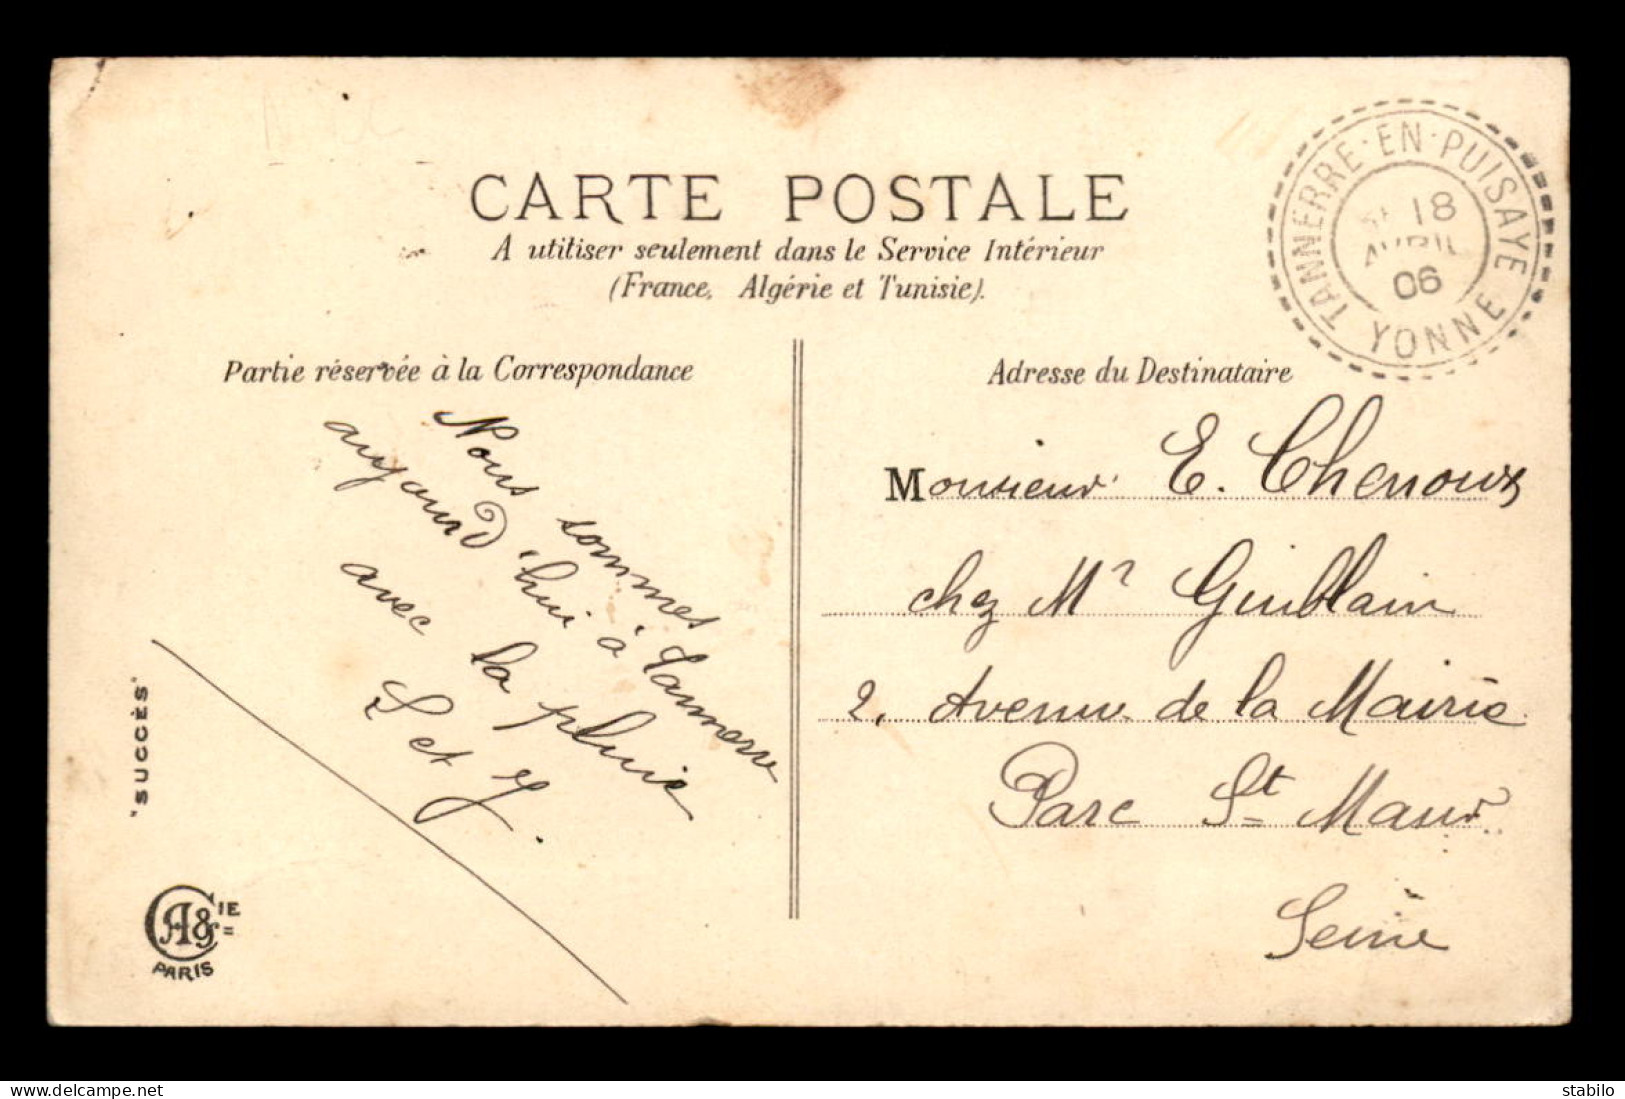 CARTE POSTALE
A utiliser seulement dans le Service Intérieur
(France, Algérie et Tunisie).
TANNERRE-EN-PUISAYE
18
AVRIL
06
YONNE
Partie réservée à la Correspondance
Nous sommes
aujourd'hui à Tannerre
avec la pluie
L et J.
"SUCCÈS"
CA & IE
PARIS
Adresse du Destinataire
Monsieur E. Chenoux
chez Mr Guiblain
2, Avenue de la Mairie
Parc St Maur
Seine
delcampe.net
stabilo